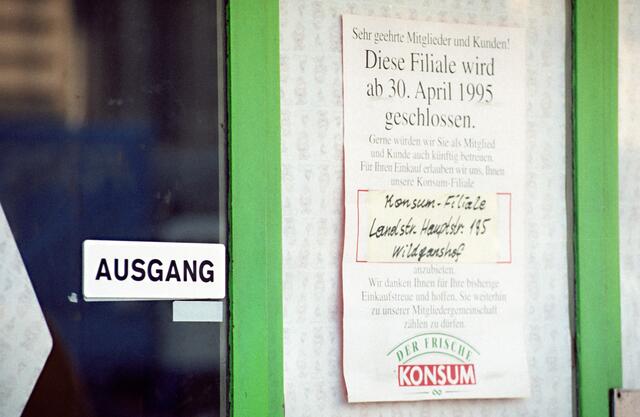 Sehr geehrte Mitglieder und Kunden!
Diese Filiale wird
ab 30. April 1995
geschlossen.
Gerne würden wir Sie als Mitglied
und Kunde auch künftig betreuen.
Für Ihren Einkauf erlauben wir uns, Ihnen
unsere Konsum-Filiale
Konsum-Filiale
Landstr. Hauptstr. 195
Wildganshof
anzubieten.
Wir danken Ihnen für Ihre bisherige
Einkaufstreue und hoffen, Sie weiterhin
zu unserer Mitgliedergemeinschaft
zählen zu dürfen.
DER FRISCHE
KONSUM
AUSGANG